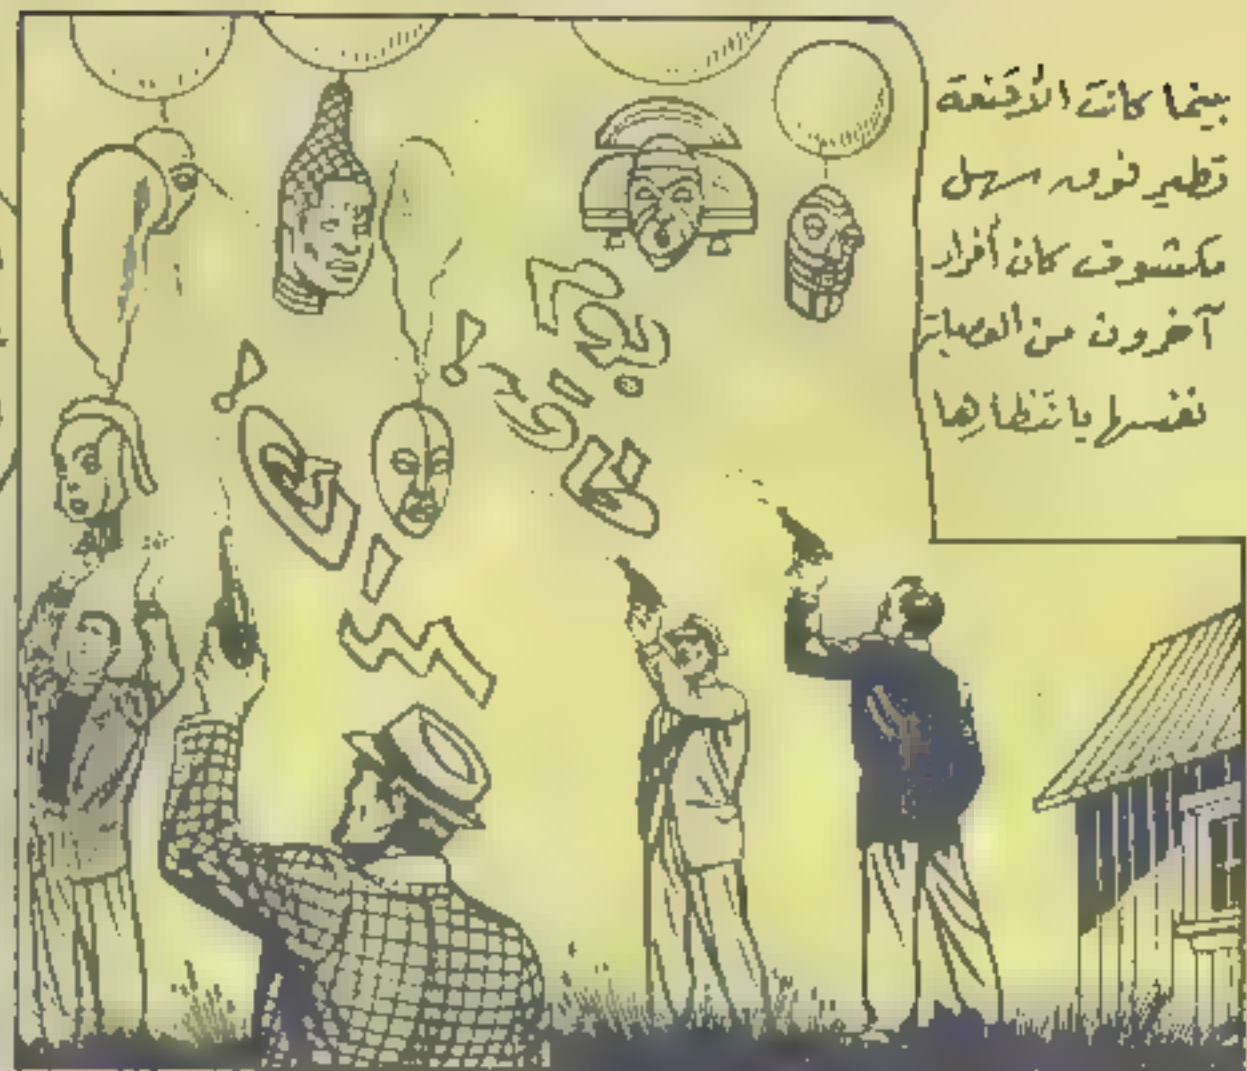 بينما كانت الأقنعة
تطير فوق سهل
مكشوف كان أفراد
آخرون من العصابة
نفسها بانتظارها